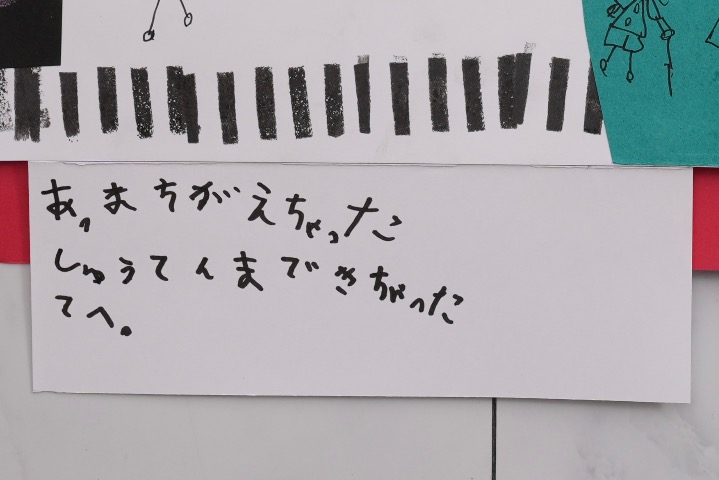 あっまちがえちゃった
しゅうてんまできちゃった
てへ。